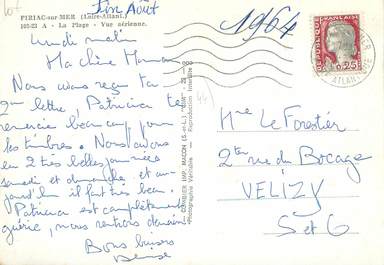 fin Août
PIRIAC-sur-MER (Loire-Atlant.)
105-23 A - La Plage - Vue aérienne.
1964
lundi matin
Ma chère Maman
Nous avons reçu ta
2me lettre, Patricia te
remercie beaucoup pour
les timbres. Nous avons
eu 2 très belles journées
samedi et dimanche et au-
jourd'hui il fait très beau.
Patricia est complètement
guérie, nous rentrons demain
Bons baisers
Denise
COMBIER IMP. MACON (S.-et-L.) "CIM"
Photographie Véritable - Reproduction Interdite
REPUBLIQUE FRANÇAISE
0,25
POSTES
LOIRE ATLANTIQUE
Mme Le Forestier
2 ter rue du Bocage
VELIZY
S et O